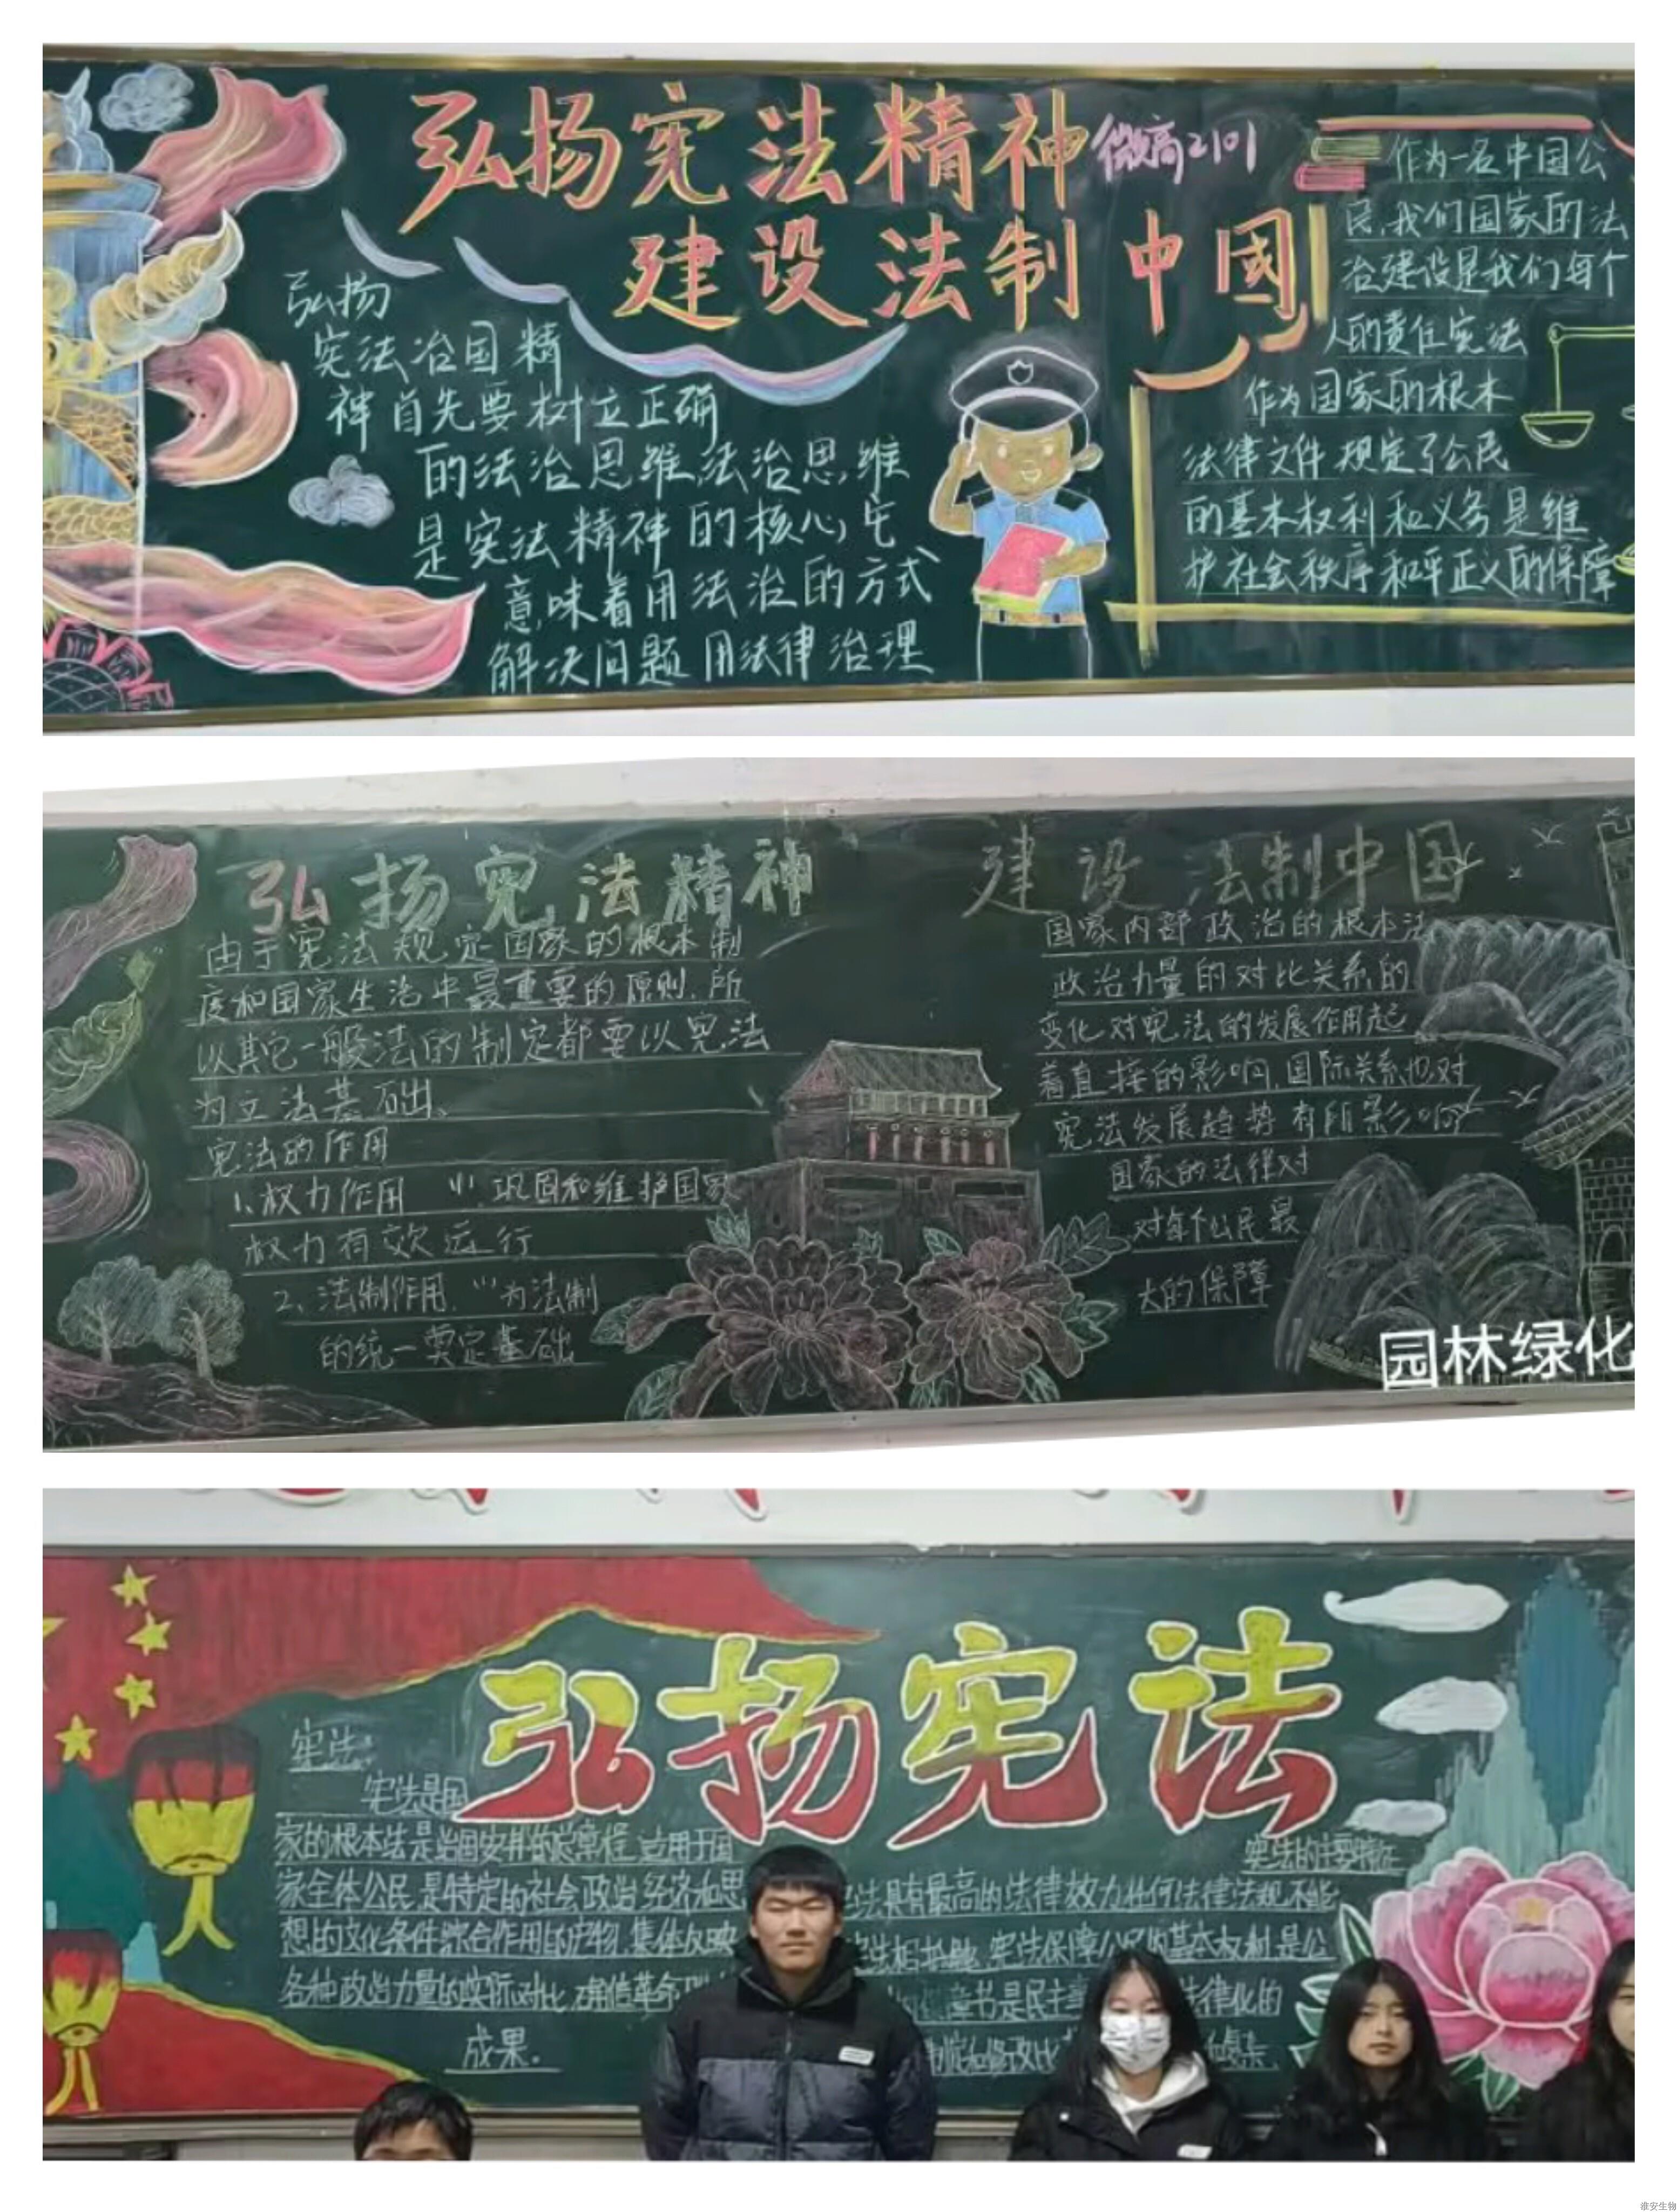 弘扬宪法精神
微高2101
建设法制中國
弘扬
宪法治国精
神首先要树立正确
的法治思维,法治思维
是宪法精神的核心,它
意味着用法治的方式
解决问题 用法律治理
作为一名中国公
民,我们国家的法
治建设是我们每个
人的责任宪法
作为国家的根本
法律文件 规定了公民
的基本权利和义务是维
护社会秩序和平正义的保障
弘扬宪法精神
建设法制中国
由于宪法规定国家的根本制
度和国家生活中最重要的原则,所
以其它一般法的制定都要以宪法
为立法基础、
宪法的作用
1、权力作用 (1)巩固和维护国家
权力有效运行
2、法制作用 (1)为法制
的统一奠定基础
国家内部政治的根本法
政治力量的对比关系的
变化对宪法的发展作用起
着直接的影响,国际关系也对
宪法发展趋势有所影响
国家的法律对
对每个公民最
大的保障
园林绿化
弘扬宪法
宪法:
宪法是国
家的根本法是治国安邦的总章程,适用于国
家全体公民,是特定的社会政治经济和思
想的文化条件综合作用的产物,集体反映
各种政治力量的实际对比,确信革命
成果。
宪法的主要特征
法具有最高的法律效力任何法律法规不能
宪法相抵触,宪法保障公民的基本权利,是公
章书是民主事 法律化的
制定和修改比
淮安生物